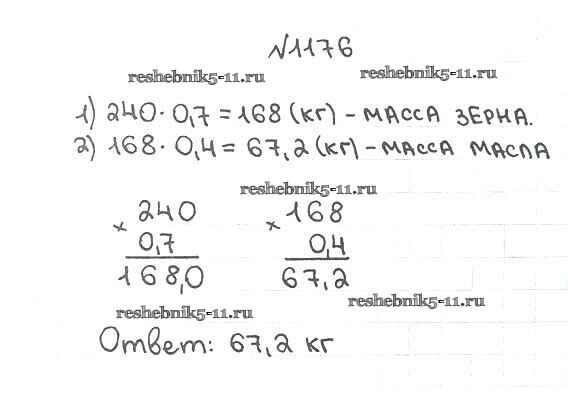 №1176
reshebnik5-11.ru reshebnik5-11.ru
1) 240 · 0,7 = 168 (кг) - масса зерна.
2) 168 · 0,4 = 67,2 (кг) - масса масла
reshebnik5-11.ru
× 240 × 168
0,7 0,4
168,0 67,2
reshebnik5-11.ru reshebnik5-11.ru
Ответ: 67,2 кг